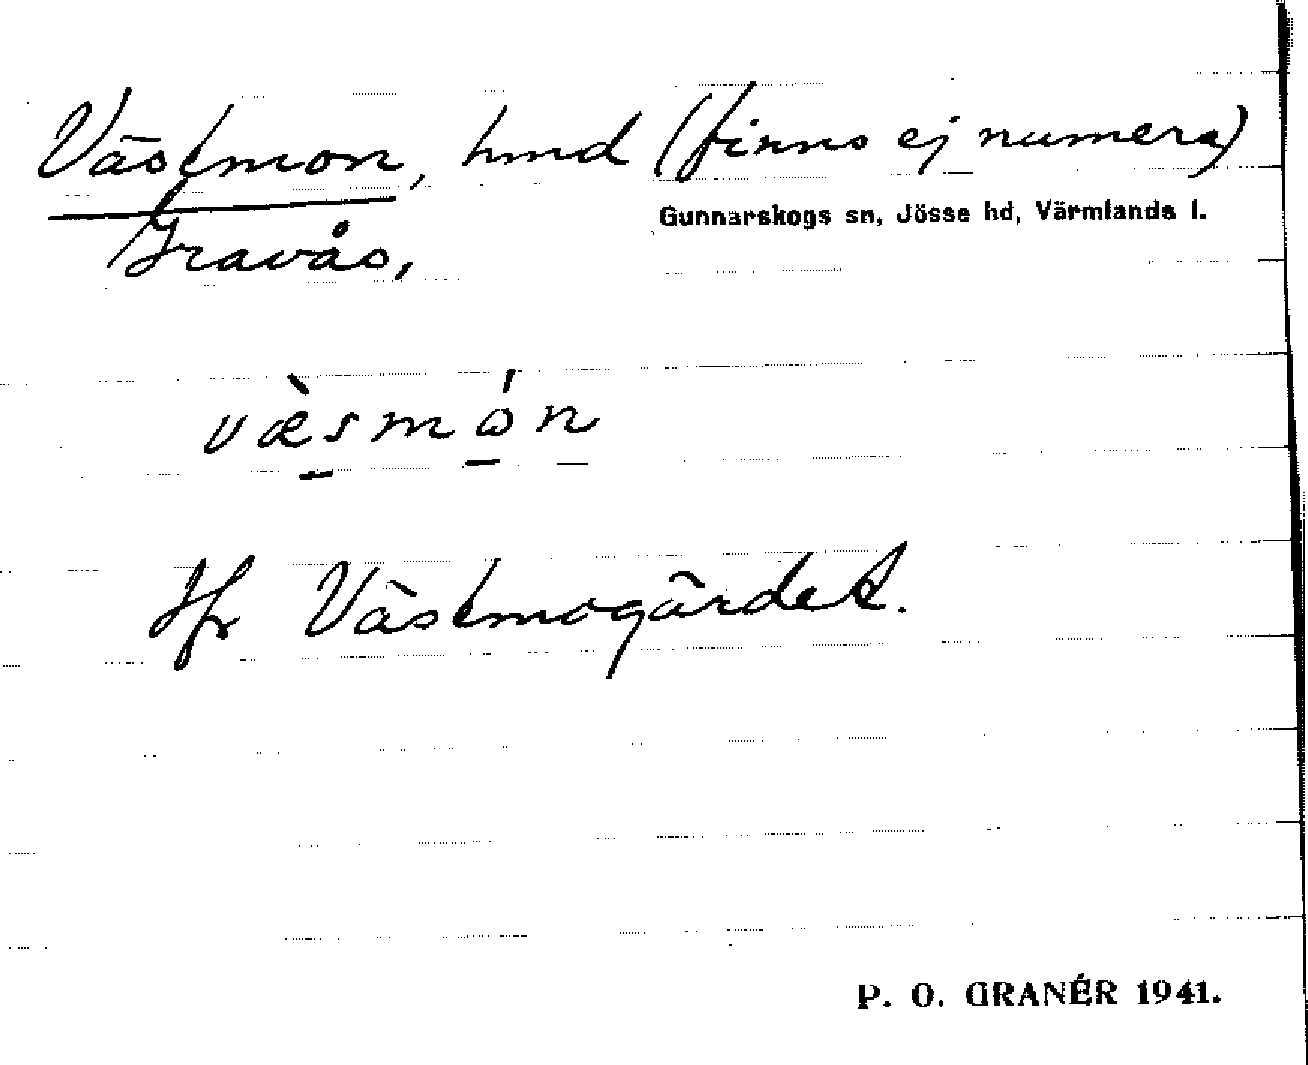 Västmon, hmd (finns ej numera)
Gunnarskogs sn, Jösse hd, Värmlands l.
Gravås,
væ̀smón
Jfr Västmogärdet.
P. O. GRANÉR 1941.